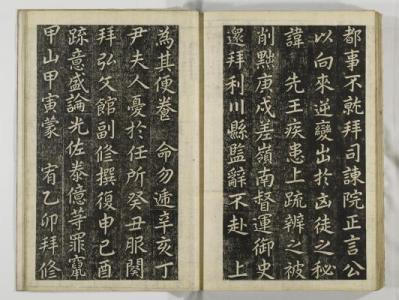 都事不就拜司諫院正言公
以向來逆孌出於凶徒之秘
諱先王疾患上疏辨之被
削黜庚戌差嶺南督運御史
還拜利川縣監辭不赴上
為其便養命勿遞辛亥丁
尹夫人憂於任所癸丑服闋
拜弘文館副修撰復申己酉
疏意盛論光佐泰億等罪竄
甲山甲寅蒙宥乙卯拜修